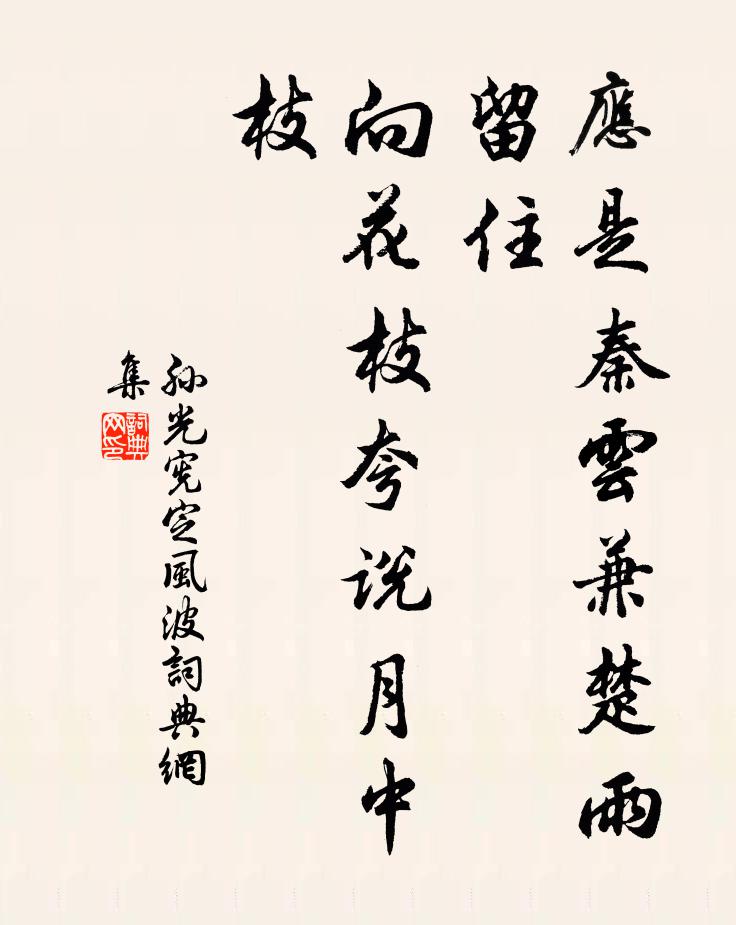 應是秦雲兼楚雨
留住
向花枝夸说月中
枝
孙光宪定風波詞典網
集
詞典
网印